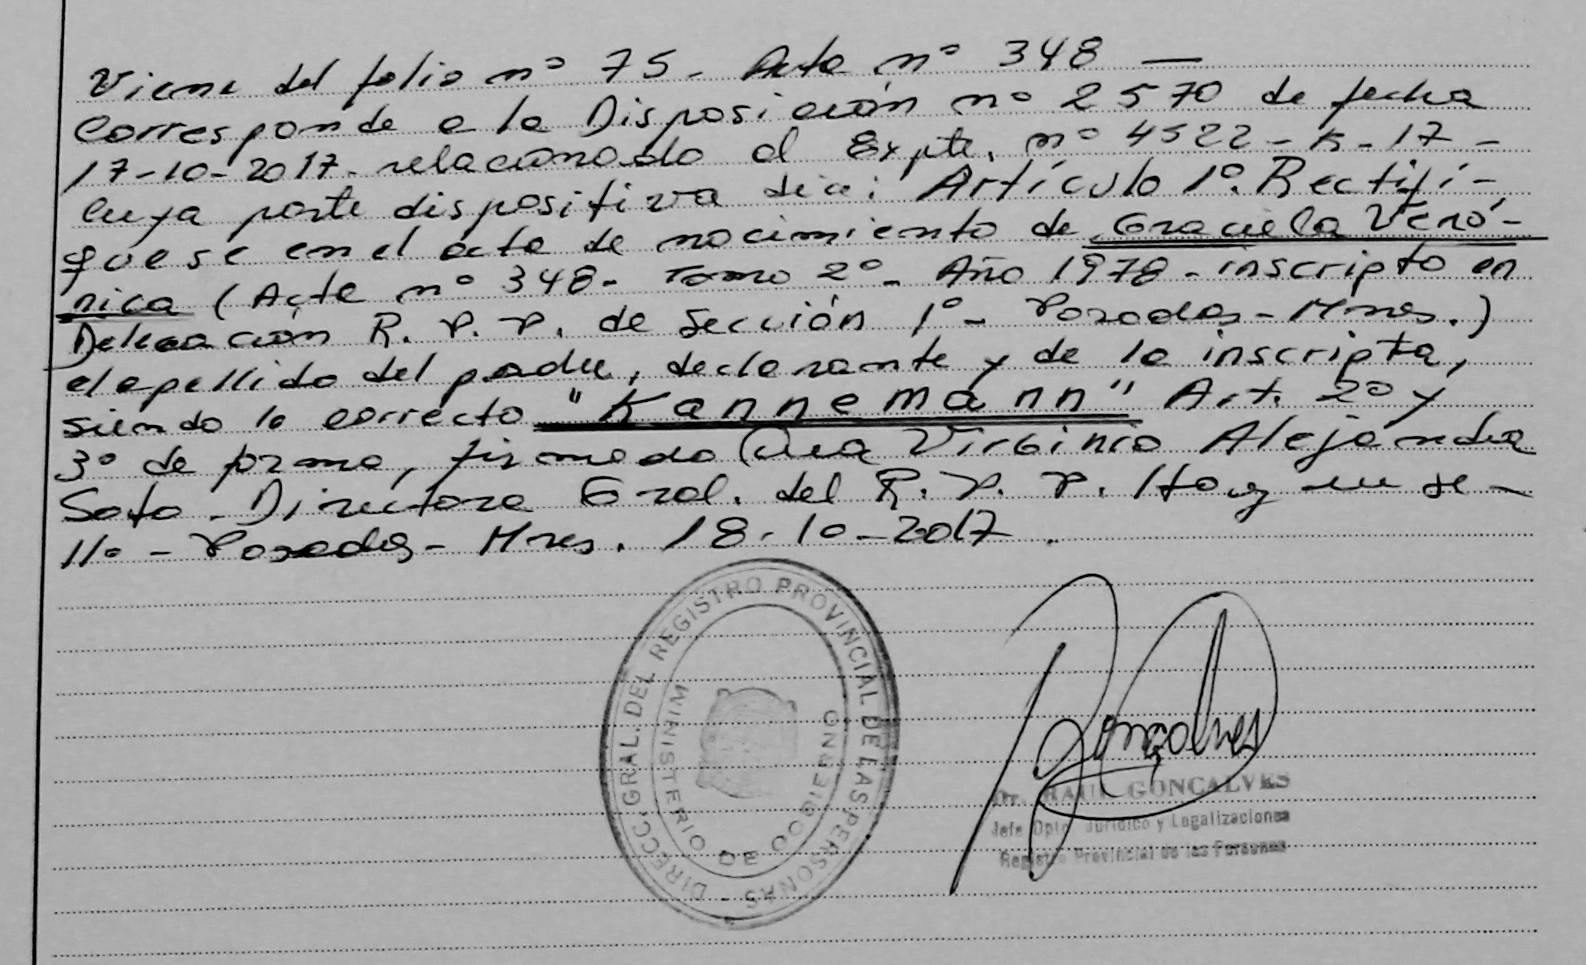 Viene del folio nº 75 - Acta nº 348 —
Corresponde a la Disposición nº 2570 de fecha
17-10-2017 - relacionado al Expte. nº 4522 - K - 17 -
cuya parte dispositiva dice: Artículo 1º. Rectifí-
quese en el acta de nacimiento de Graciela Veró-
nica (Acta nº 348 - Tomo 2º - Año 1978 - inscripto en
Delegación R. P. P. de Sección 1º - Posadas - Mnes.)
el apellido del padre, declarante y de la inscripta,
siendo lo correcto "Kannemann" Art. 2º y
3º de forma, firmado Virginia Alejandra
Soto - Directora Gral. del R. P. P. Hoy
11º - Posadas - Mnes. 18-10-2017.
DIRECC. GRAL. DEL REGISTRO PROVINCIAL DE LAS PERSONAS -
MINISTERIO DE GOBIERNO
Gonçalves
Dr. RAUL GONCALVES
Jefe Dpto. Jurídico y Legalizaciones
Registro Provincial de las Personas